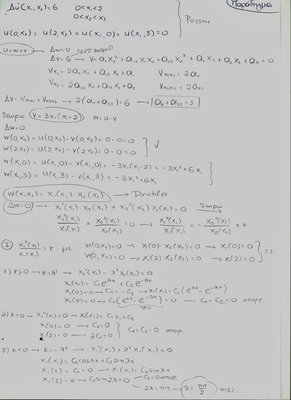 Παράδειγμα
Δu(x₁,x₂)=6 0<x₁<2
0<x₂<3 Poisson
u(0,x₂) = u(2,x₂) = u(x₁,0) = u(x₁,3) = 0
u=w+v → Δw=0
Δv=6 → v = a₁₁x₁² + a₁₂x₁x₂ + a₂₂x₂² + a₁x₁ + a₂x₂ + a₀ = 0
Vx₁ = 2a₁₁x₁ + a₁₂x₂ + a₁ Vx₁x₁ = 2a₁₁
Vx₂ = 2a₂₂x₂ + a₁₂x₁ + a₂ Vx₂x₂ = 2a₂₂
Δv = Vx₁x₁ + Vx₂x₂ → 2(a₁₁+a₂₂)=6 → a₁₁+a₂₂=3
V=3x₁(x₁-2) w=u-v
Δw=0
w(0,x₂) = u(0,x₂) - v(0,x₂) = 0-0=0
w(2,x₂) = u(2,x₂) - v(2,x₂) = 0-0=0
w(x₁,0) = u(x₁,0) - v(x₁,0) = -3x₁(x₁-2) = -3x₁²+6x₁
w(x₁,3) = u(x₁,3) - v(x₁,3) = -3x₁²+6x₁
w(x₁,x₂) = X₁(x₁) X₂(x₂) → Dirichlet
Δw=0 → X₁''(x₁) X₂(x₂) + X₂''(x₂) X₁(x₁) = 0
X₁''(x₁)/X₁(x₁) + X₂''(x₂)/X₂(x₂) = 0 → X₁''(x₁)/X₁(x₁) = - X₂''(x₂)/X₂(x₂) = k
① X₁''(x₁)/X₁(x₁) = k με w(0,x₂)=0 → X₁(0)·X₂(x₂)=0 → X₁(0)=0
w(2,x₂)=0 → X₁(2)·X₂(x₂)=0 → X₁(2)=0
1) k>0 → k=λ² → X₁''(x₁) - λ²X₁(x₁) = 0
X₁(x₁) = C₁e^{λx₁} + C₂e^{-λx₁}
2) k=0 → X₁''(x₁)=0 → X₁(x₁) = C₁x₁+C₂
X₁(0)=0 → C₂=0
X₁(2)=0 → 2C₁=0 C₁=C₂=0
3) k<0 → k=-λ² → X₁''(x₁) + λ²X₁(x₁) = 0
X₁(x₁) = C₁cosλx₁ + C₂sinλx₁
X₁(0)=0 → C₁=0 → X₁(x₁) = C₂sinλx₁
2λ=nπ → λ=nπ/2